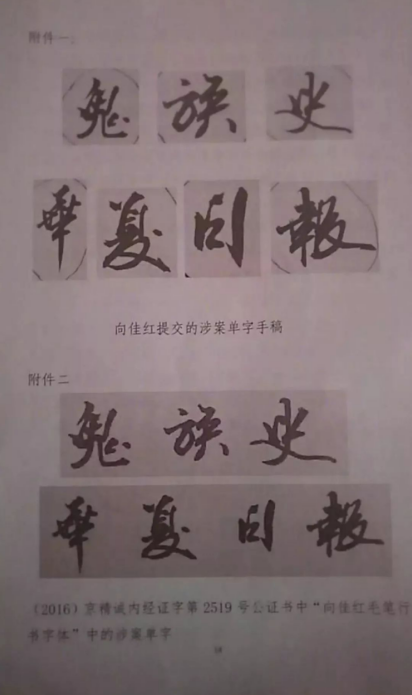 附件一、
鬼族史
華夏日報
向佳红提交的涉案单字手稿
附件二
鬼族史
華夏日報
（2016）京精诚内经证字第 2519 号公证书中“向佳红毛笔行
书字体”中的涉案单字